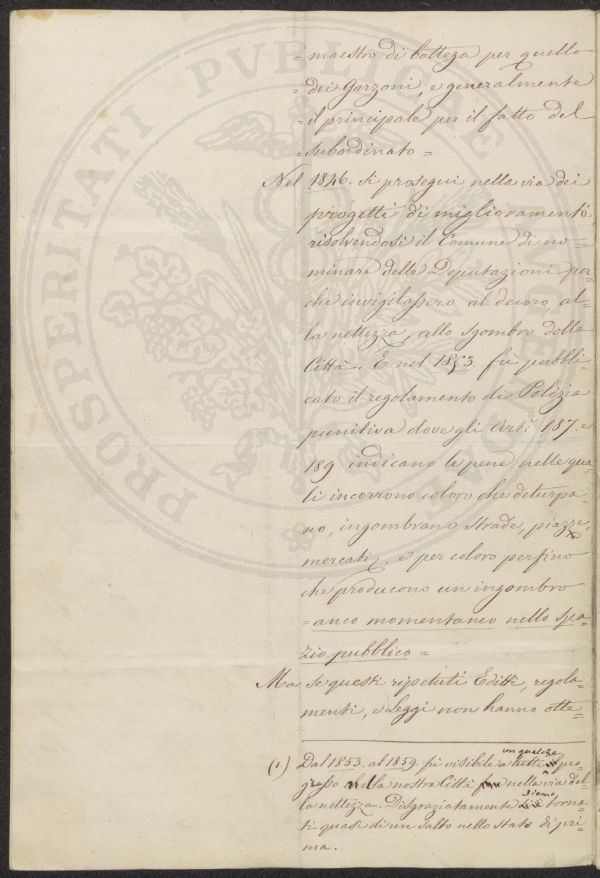 PROSPERITATI PVBLICAE
= maestro di bottega per quello
= dei Garzoni, e generalmente
= il principale per il fatto del
= subordinato =
Nel 1846. si proseguì nella via dei
progetti di miglioramento
risolvendosi il Comune di no=
minare delle Deputazioni per=
chè invigilassero al decoro, al=
la nettezza, allo sgombro della
Città. E nel 1853 fù pubbli=
cato il regolamento di Polizia
punitiva dove gli Arti. 187. e
189 indicano le pene nelle qua=
li incorrono coloro che deturpa=
no, ingombrano strade, piazze,
mercati, e per coloro perfino
che producono un ingombro
= anco momentaneo nello spa=
zio pubblico =
Ma se questi ripetuti Editti, regola=
menti, e Leggi non hanno otte=
(1.) Dal 1853. al 1859 fù visibile a tutti un qualche pro=
gresso nella nostra Città nella via del=
la nettezza. Disgraziatamente siamo torna=
ti quasi di un salto nello stato di pri=
ma.